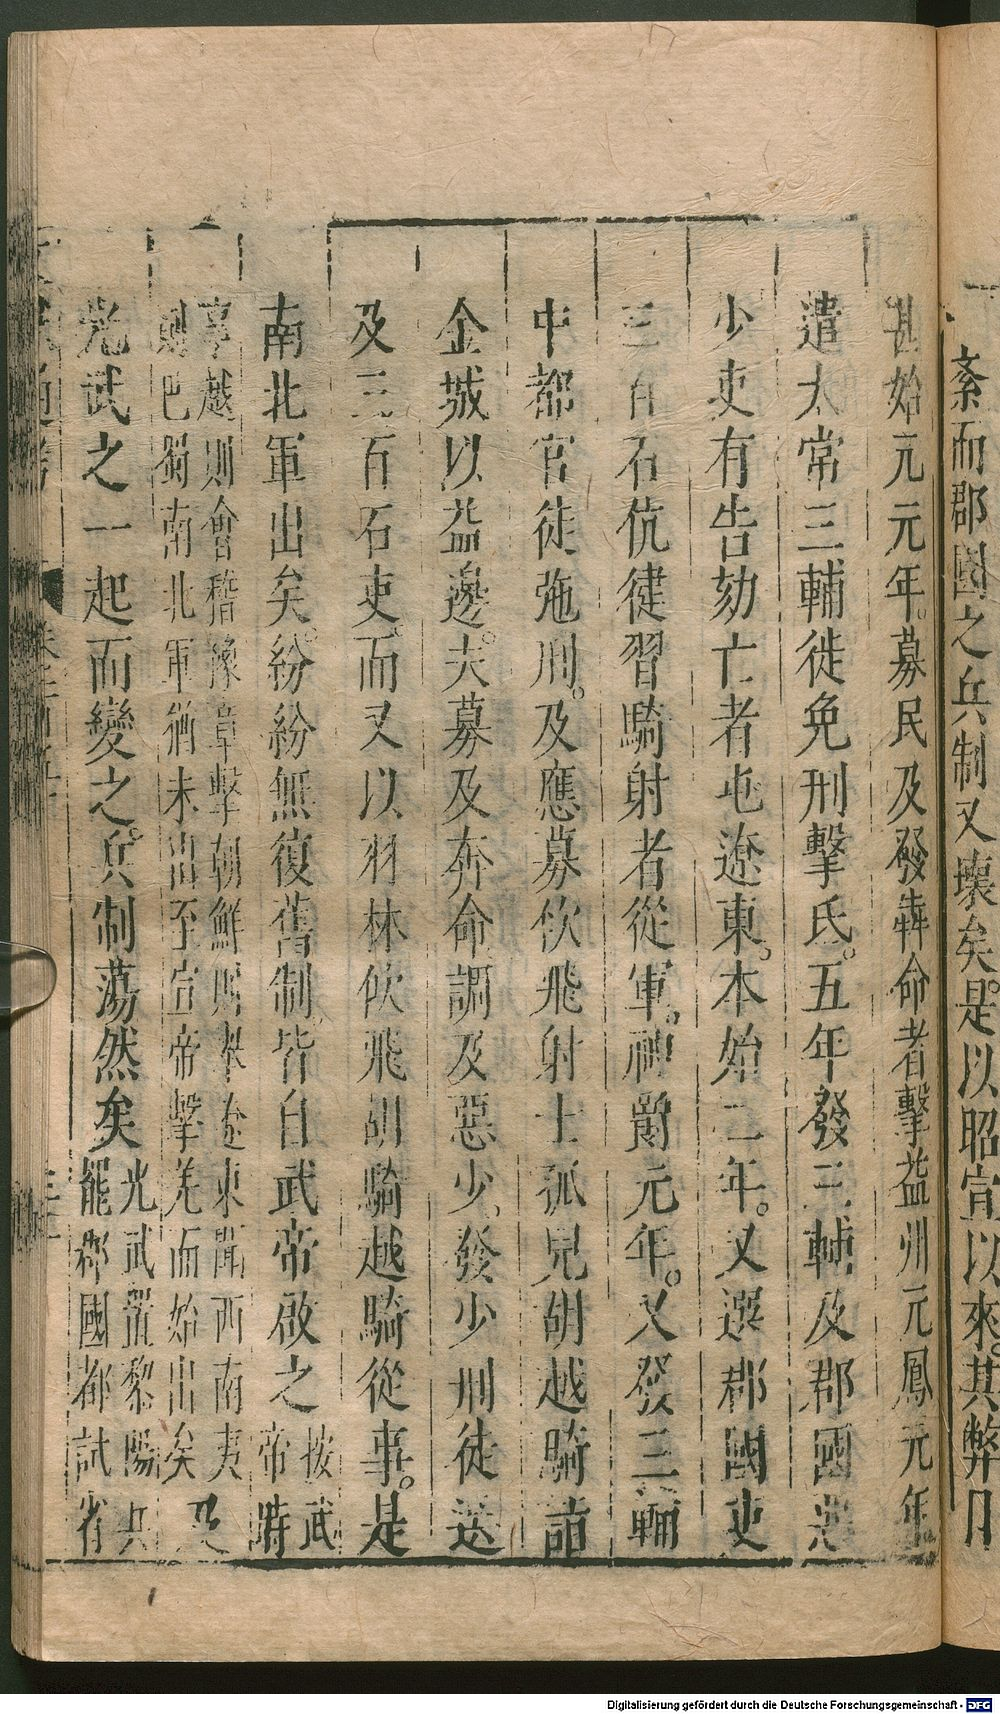 紊而郡國之兵制又壞矣是以昭宣以來其弊日
甚始元元年募民及發犇命者擊益州元鳳元年
遣太常三輔徙免刑擊氐五年發三輔及郡國惡
少吏有告劾亡者屯遼東本始二年又選郡國吏
三百石伉健習騎射者從軍神爵元年又發三輔
中都官徒弛刑及應募佽飛射士孤兒胡越騎詣
金城以益邊夫募及奔命謫及惡少發少刑徒送
及三百石吏而又以羽林佽飛胡騎越騎從事是
南北軍出矣紛紛無復舊制皆自武帝啟之按武
帝時
事越則會稽豫章擊朝鮮則本遼東開西南夷
則巴蜀南北軍猶未出至宣帝擊羌而始出矣 及
光武之一起而變之兵制蕩然矣光武置黎陽兵
罷郡國都試省
文獻通考 卷一百五十
Digitalisierung gefördert durch die Deutsche Forschungsgemeinschaft - DFG